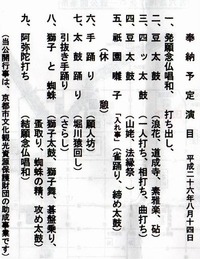 奉納予定演目 平成二十六年八月十四日
一、発願念仏唱和、打ち出し、
二、豆太鼓 (浪花、道成寺、素雅楽、砧)
三、四ッ太鼓 (一人打ち、相打ち、曲打ち)
四、豆太鼓 (山姥、法縁祭、)
五、祇園囃子 「入れ事」(雀踊り、締め太鼓)
(休憩)
六、手踊り (願人坊)
七、太鼓踊り (堀川猿回し)
引抜き手踊り (さらし)
八、獅子と蜘蛛 (獅子太鼓、獅子舞、碁盤乗り、
蚤取り、蜘蛛の精、攻め太鼓)
九、阿弥陀打ち (結願念仏唱和)
(当公開行事は、京都市文化観光資源保護財団の助成事業です)